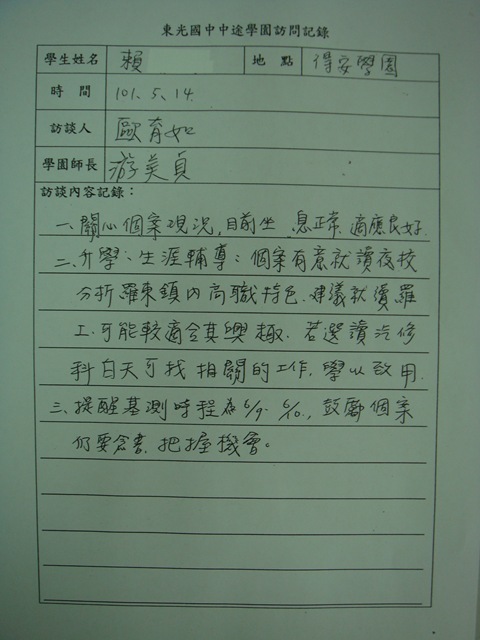 東光國中中途學園訪問記錄
學生姓名 賴 地點 得安學園
時間 101.5.14.
訪談人 歐育如
學園師長 游美貞
訪談內容記錄：
一、關心個案現況,目前坐 息正常.適應良好.
二、升學、生涯輔導：個案有意就讀夜校
分析羅東鎮內高職特色.建議就讀羅
工.可能較適合其興趣.若選讀汽修
科白天可找相關的工作.學以致用.
三、提醒基測時程為6/9.6/10.,鼓勵個案
仍要念書.把握機會。